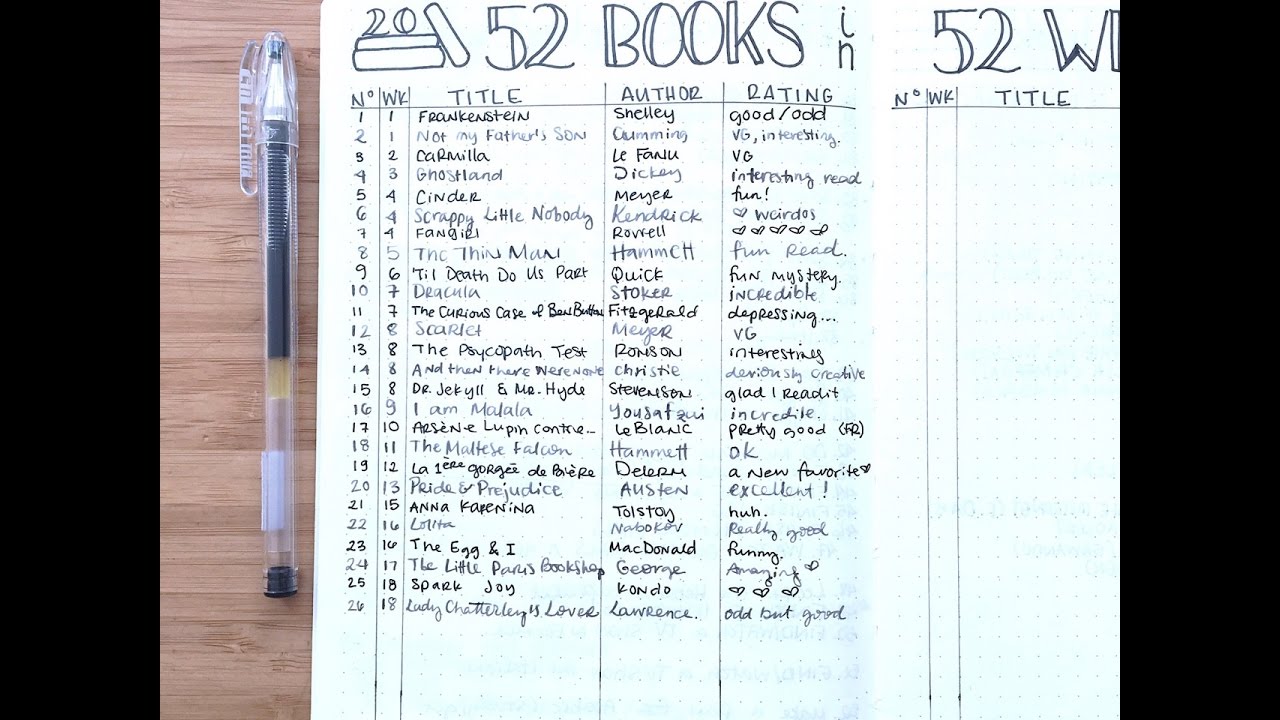 20 52 BOOKS in 52
Nº WK TITLE AUTHOR RATING Nº WK TITLE
1 1 FRANKENSTEIN Shelley good/odd
2 1 Not my Father's SON Cumming VG, interesting.
3 2 Carmilla Le Fanu VG
4 3 Ghostland Dickey interesting read
5 4 Cinder Meyer fun!
6 4 Scrappy Little Nobody Kendrick ♡ weirdos
7 4 FANGIRL Rowell ♡ ♡ ♡ ♡ ♡
8 5 The Thin Man Hammett fun Read.
9 6 'Til Death Do Us Part Quick fun mystery.
10 7 Dracula Stoker incredible
11 7 The Curious Case of Ben Button Fitzgerald depressing...
12 8 Scarlet Meyer VG
13 8 The Psycopath Test Ronson interesting
14 8 And then there were none Christie deviously creative
15 8 Dr. Jekyll & Mr. Hyde Stevenson glad I read it
16 9 I am Malala Yousafzui incredile.
17 10 Arsène Lupin contre... LeBlanc pretty good (FR)
18 11 The Maltese Falcon Hammett OK
19 12 La 1ère gorgée de Bière Delerm a new favorite ♡
20 13 Pride & Prejudice Austen excellent!
21 15 ANNA KARENINA Tolstoy huh.
22 16 Lolita Nabokov Really good
23 16 The Egg & I MacDonald funny.
24 17 The Little Paris Bookshop George Amazing ♡
25 18 Spark Joy Kondo ♡ ♡ ♡
26 18 Lady Chatterley's Lover Lawrence. odd but good